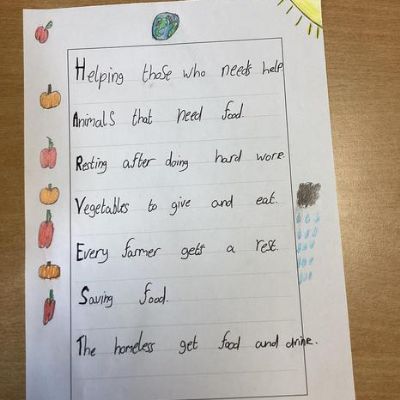 Helping those who needs help
Animals that need food.
Resting after doing hard wore
Vegetables to give and eat.
Every farmer gets a rest.
Saving food.
The homeless get food and drine.